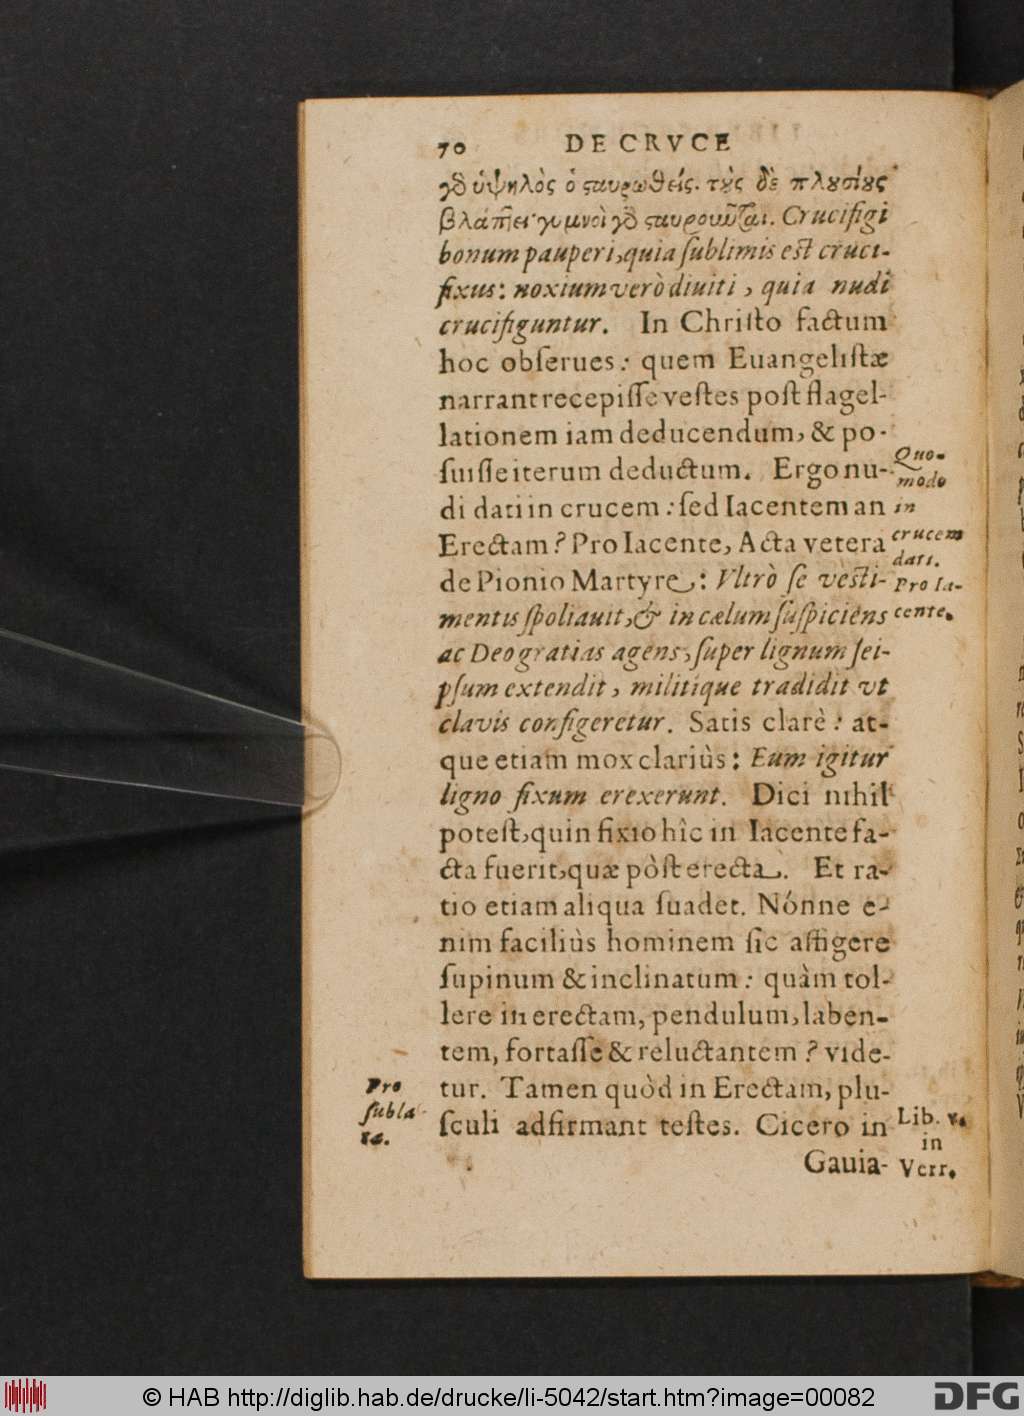 70 DE CRVCE
γὰρ ὑψηλὸς ὁ σταυρωθείς. τοὺς δὲ πλουσίους
βλάπτει· γυμνοὶ γὰρ σταυροῦνται. Crucifigi
bonum pauperi, quia ſublimis eſt cruci-
fixus: noxium verò diuiti, quia nudi
crucifiguntur. In Chriſto factum
hoc obſerues: quem Euangeliſtæ
narrant recepiſſe veſtes poſt flagel-
lationem iam deducendum, & po-
ſuiſſe iterum deductum. Ergo nu-
di dati in crucem: ſed Iacentem an
Erectam? Pro Iacente, Acta vetera
de Pionio Martyre: Vltrò ſe veſti-
mentis ſpoliauit, & in cælum ſuſpiciens
ac Deo gratias agens, ſuper lignum ſei-
pſum extendit, militique tradidit vt
clavis configeretur. Satis clarè: at-
que etiam mox clariùs: Eum igitur
ligno fixum erexerunt. Dici nihil
poteſt, quin fixio hîc in Iacente fa-
cta fuerit, quæ pòſt erecta. Et ra-
tio etiam aliqua ſuadet. Nónne e-
nim faciliùs hominem ſic affigere
ſupinum & inclinatum: quàm tol-
lere in erectam, pendulum, laben-
tem, fortaſſe & reluctantem? vide-
tur. Tamen quòd in Erectam, plu-
ſculi adfirmant teſtes. Cicero in
Gauia-
Quo-
modo
in
crucem
dati.
Pro Ia-
cente.
Pro
ſubla
ta.
Lib. v.
in
Verr.
© HAB http://diglib.hab.de/drucke/li-5042/start.htm?image=00082
DFG